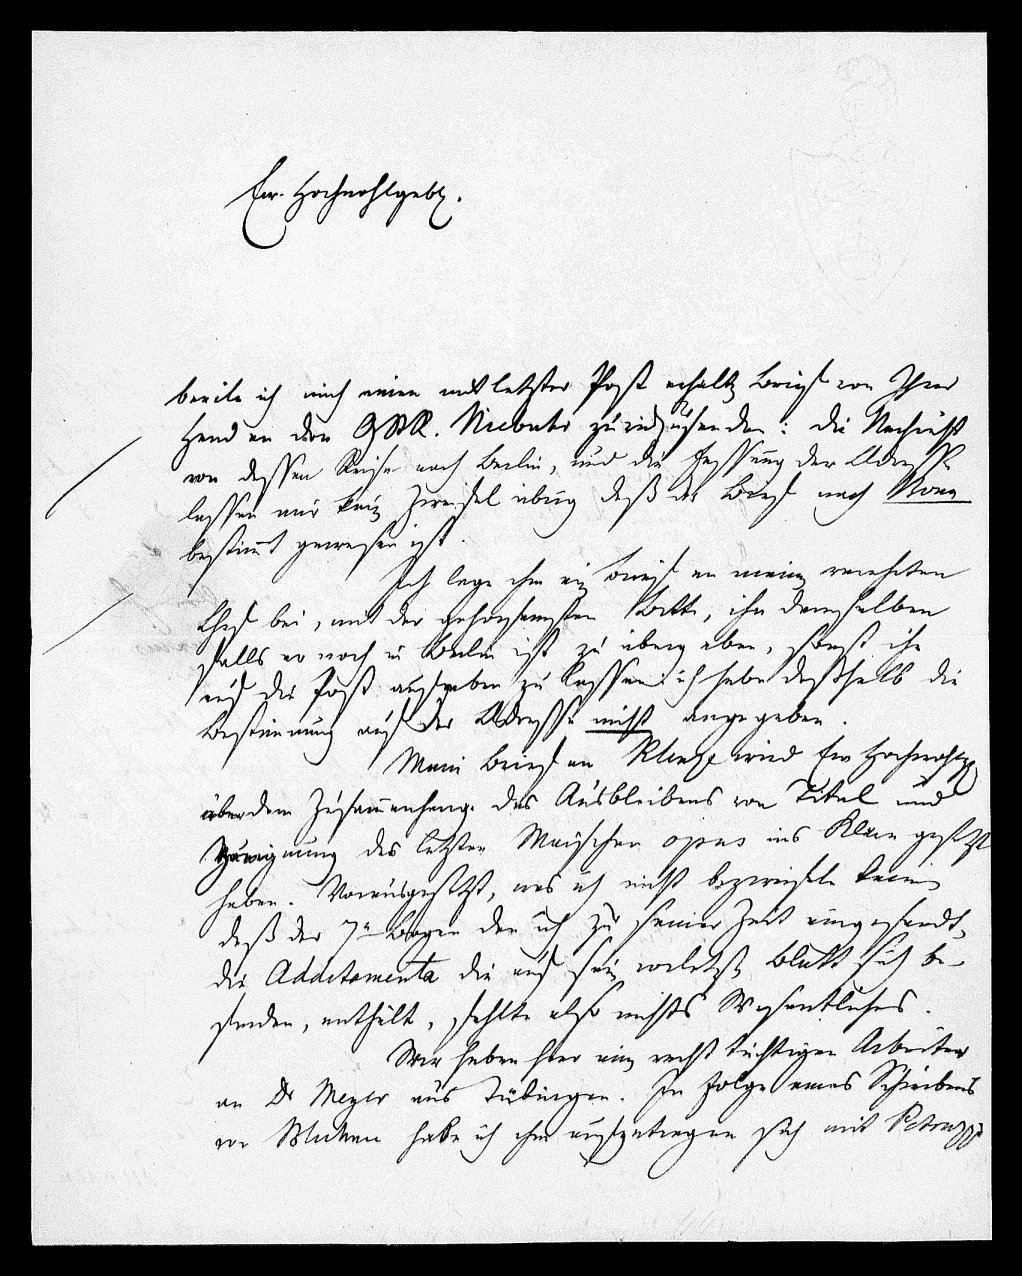 Ew. Hochwohlgeb.
beeile ich mich einen mit letzter Post erhaltenen Brief von Ihrer
Hand an den GStR. Niebuhr zurückzusenden: die Nachricht
von dessen Reise nach Berlin, und die Fassung der Adresse
lassen mir kein Zweifel übrig daß der Brief nach Bonn
bestimmt gewesen ist.
Ich lege ihm ein Brief an meinen verehrten
Chef bei, mit der gehorsamsten Bitte, ihn demselben
falls er noch in Berlin ist zu übergeben, sonst ihn
auf die Post zu lassen: ich habe deßhalb die
Bestimmung auf der Adresse nicht angegeben.
Mein Brief an Klenze wird Ew Hochwohlg
über den Zusammenhang des Ausbleibens von Titel und
Zueignung des letzten Maischen opus ins Klare gesetzt
haben. Vorausgesetzt, was ich nicht bezweifele
daß der 7te Bogen den ich zu seiner Zeit eingesandt,
die Additamenta die auf sein vorletzt Blatt sich be-
finden, enthält, fehlte also nichts Wesentliches.
Wir haben hier einen recht tüchtigen Arbeiter
an Dr Meyer aus Tübingen. In Folge eines Schreibens
von habe ich ihm aufgetragen sich mit Petrucci